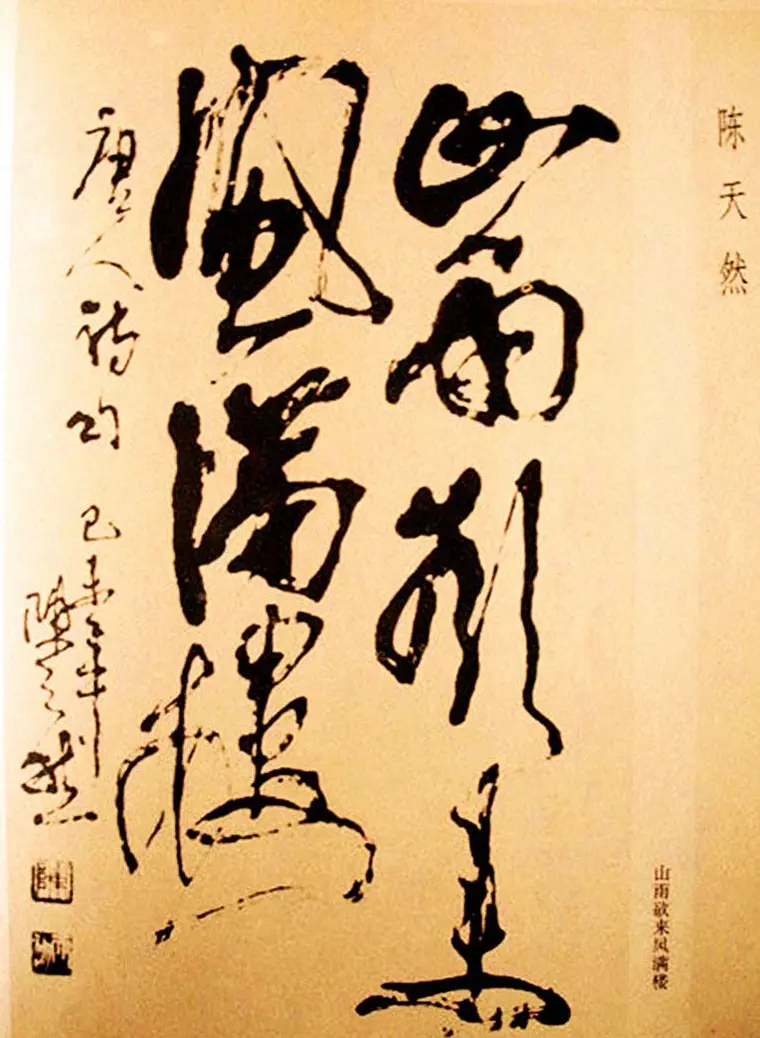 陈天然
山雨欲来
風满楼
唐人诗句 己未年
陳天然
山雨欲来风满楼